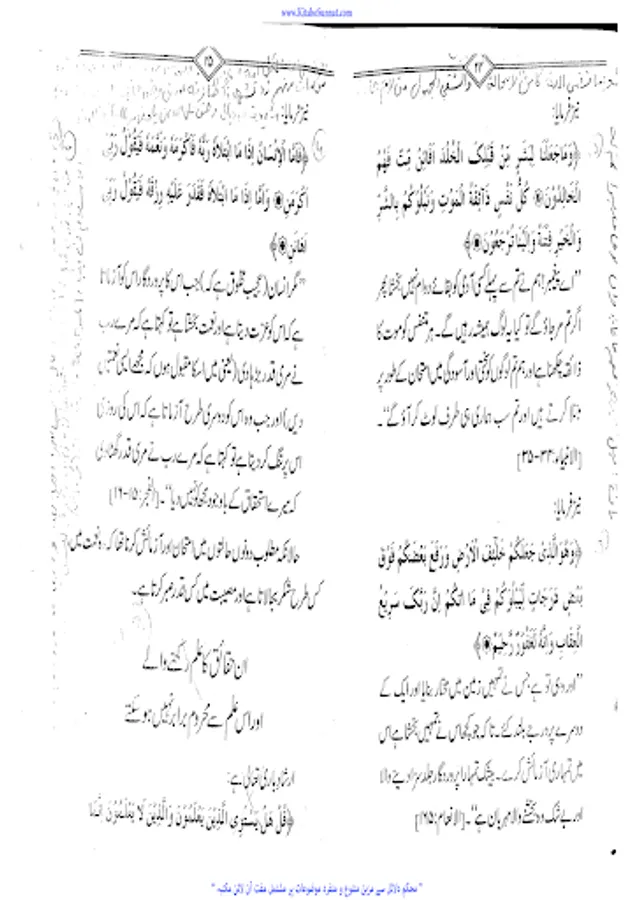 www.KitaboSunnat.com
۲۴
نیز فرمایا:
﴿وَمَا جَعَلْنَا لِبَشَرٍ مِّنْ قَبْلِكَ الْخُلْدَ اَفَائِنْ مِّتَّ فَهُمُ
الْخَالِدُوْنَ۞ كُلُّ نَفْسٍ ذَآئِقَةُ الْمَوْتِ وَنَبْلُوْكُمْ بِالشَّرِّ
وَالْخَيْرِ فِتْنَةً وَاِلَيْنَا تُرْجَعُوْنَ۞﴾
"اے پیغمبر! ہم نے تم سے پہلے کسی آدمی کو بقائے دوام نہیں بخشا پھر
اگر تم مر جاؤ گے تو کیا یہ لوگ ہمیشہ رہیں گے۔ ہر متنفس کو موت کا
ذائقہ چکھنا ہے اور ہم تم لوگوں کو سختی اور آسودگی میں امتحان کے طور پر
مبتلا کرتے ہیں اور تم سب ہماری ہی طرف لوٹ کر آؤ گے"۔
[الانبیاء:۳۴-۳۵]
نیز فرمایا:
﴿وَهُوَ الَّذِىْ جَعَلَكُمْ خَلٰٓئِفَ الْاَرْضِ وَرَفَعَ بَعْضَكُمْ فَوْقَ
بَعْضٍ دَرَجَاتٍ لِّيَبْلُوَكُمْ فِىْ مَا اٰتٰكُمْ اِنَّ رَبَّكَ سَرِيْعُ
الْعِقَابِ وَاِنَّهُ لَغَفُوْرٌ رَّحِيْمٌ۞﴾
"اور وہی تو ہے جس نے تمہیں زمین میں مختار بنایا اور ایک کے
دوسرے پر درجے بلند کئے۔ تاکہ جو کچھ اس نے تمہیں بخشا ہے اس
میں تمہاری آزمائش کرے۔ بیشک تمہارا پروردگار جلد سزا دینے والا
اور بے شک وہ بخشنے والا مہربان ہے"۔ [الانعام:۱۶۵]
۲۵
نیز فرمایا:
﴿فَاَمَّا الْاِنْسَانُ اِذَا مَا ابْتَلَاهُ رَبُّهُ فَاَكْرَمَهُ وَنَعَّمَهُ فَيَقُوْلُ رَبِّىْ
اَكْرَمَنِ۞ وَاَمَّا اِذَا مَا ابْتَلَاهُ فَقَدَرَ عَلَيْهِ رِزْقَهُ فَيَقُوْلُ رَبِّىْ
اَهَانَنِ۞﴾
"مگر انسان (عجیب مخلوق ہے کہ) جب اس کا پروردگار اس کو آزماتا
ہے کہ اس کو عزت دیتا ہے اور نعمت بخشتا ہے تو کہتا ہے کہ میرے رب
نے میری قدر بڑھا دی (یعنی میں اس کا مقبول ہوں کہ مجھے ایسی نعمتیں
دیں) اور جب وہ اس کو دوسری طرح آزماتا ہے کہ اس کی روزی
اس پر تنگ کر دیتا ہے تو کہتا ہے کہ میرے رب نے میری قدر گھٹا دی
کہ میرے استحقاق کے باوجود مجھ کو نہیں دیا"۔ [الفجر:۱۵-۱۶]
حالانکہ مطلوب دونوں حالتوں میں امتحان اور آزمائش کرنا تھا کہ وہ نعمت میں
کس طرح شکر بجالاتا ہے اور مصیبت میں کس قدر صبر کرتا ہے۔
ان حقائق کا علم رکھنے والے
اور اس علم سے محروم برابر نہیں ہو سکتے
ارشاد باری تعالیٰ ہے:
﴿قُلْ هَلْ يَسْتَوِى الَّذِيْنَ يَعْلَمُوْنَ وَالَّذِيْنَ لَا يَعْلَمُوْنَ اِنَّمَا
"محکم دلائل سے مزین متنوع و منفرد موضوعات پر مشتمل مفت آن لائن مکتبہ"